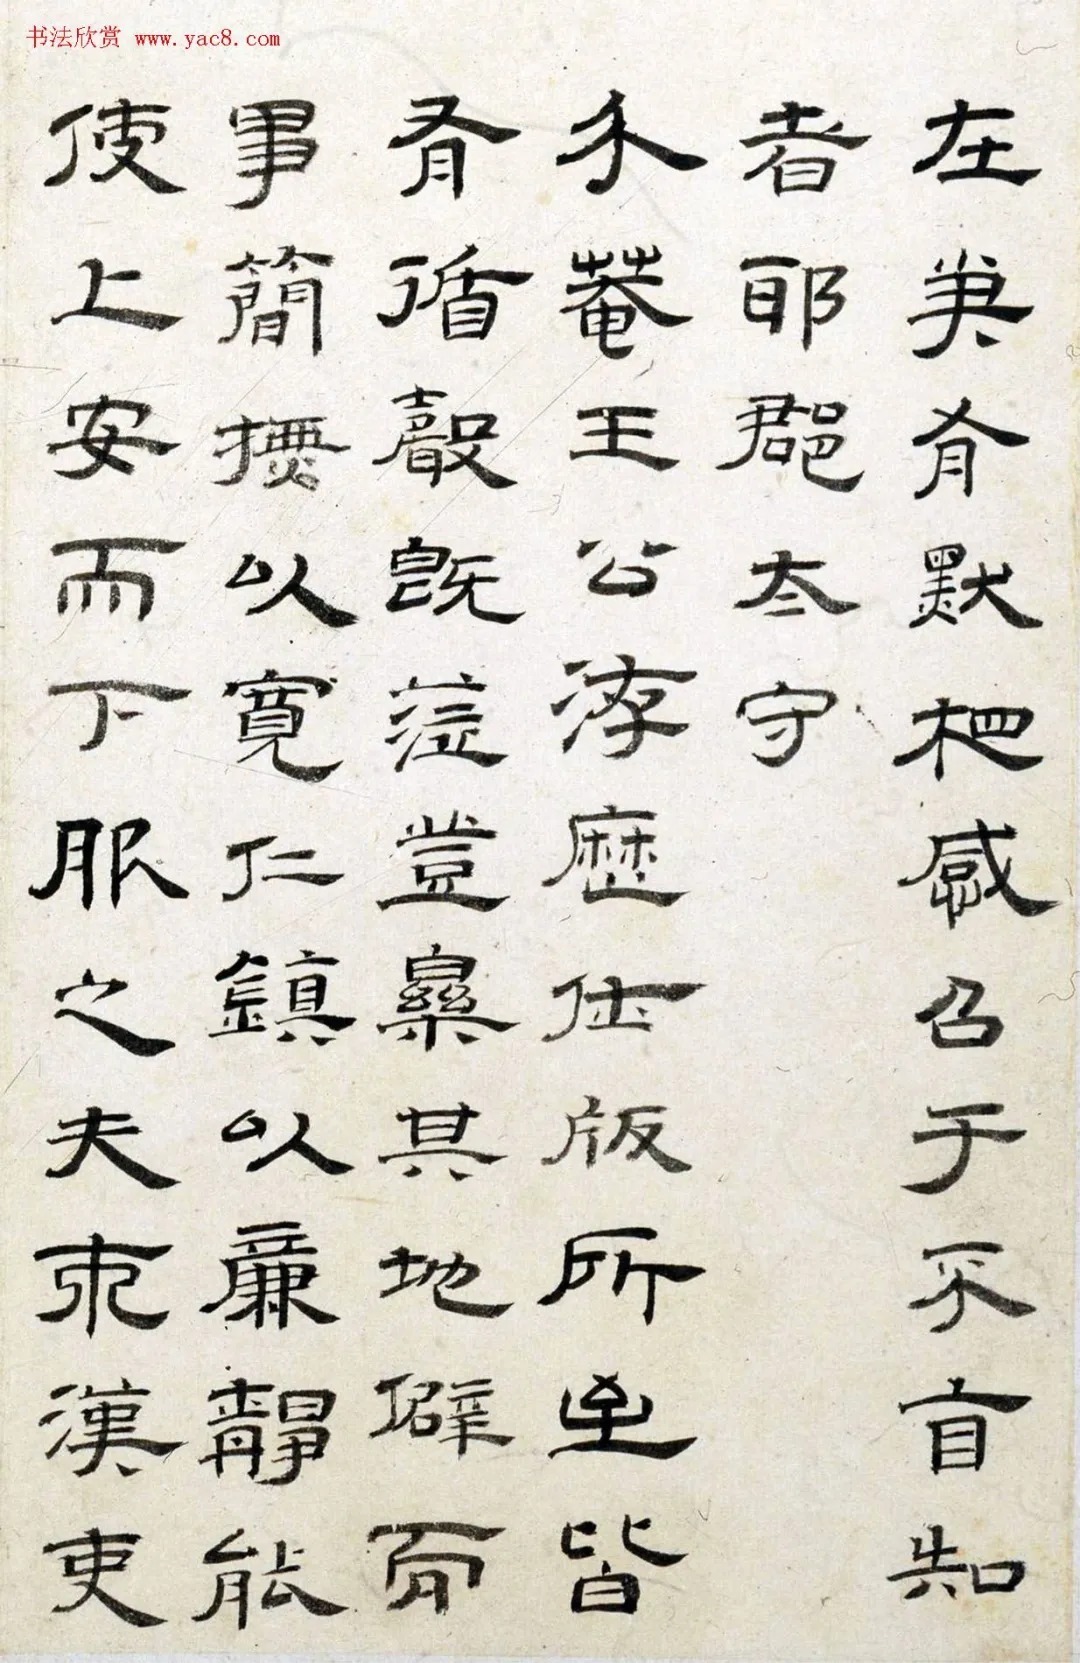 在有默感召于不知
者耶郡太守
禾菴王公游歷仕版所至皆
有循聲既蒞登樂其地僻而
事簡撫以寬仁鎮以廉靜能
使上安而下服之夫求漢吏
书法欣赏 www.yac8.com